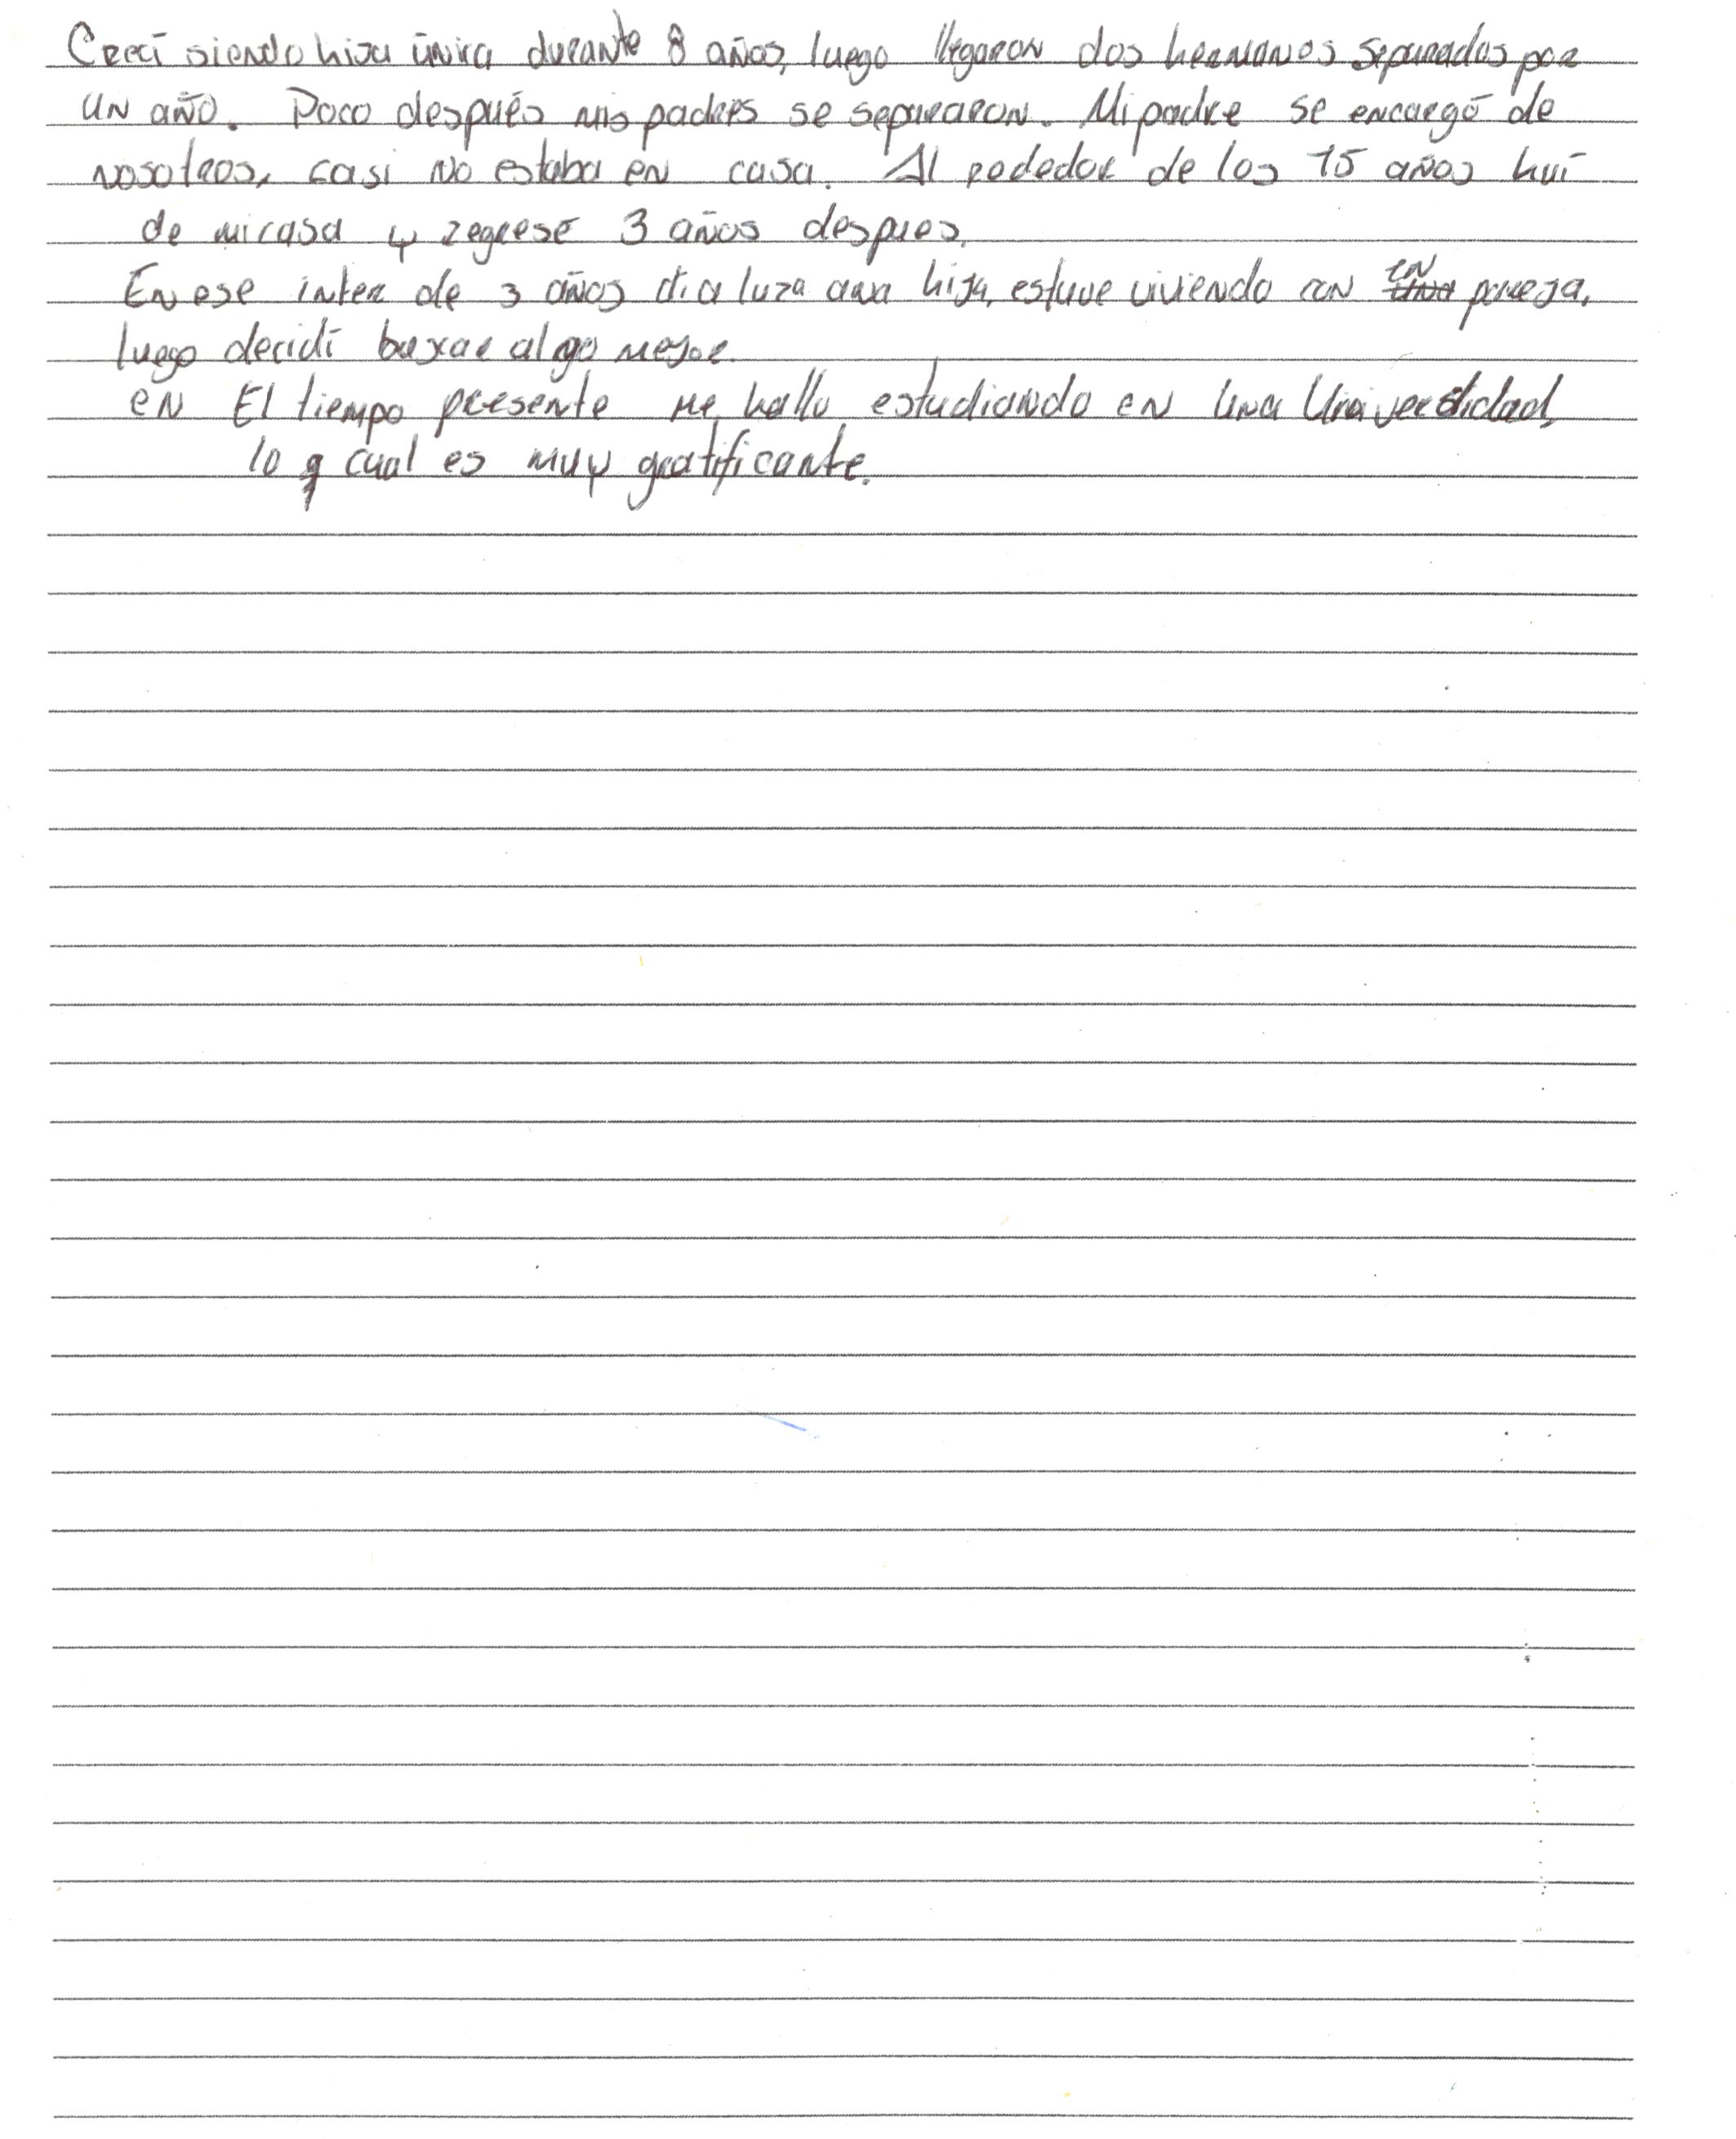 Crecí siendo hija única durante 8 años, luego llegaron dos hermanos separados por
un año. Poco después mis padres se separaron. Mi padre se encargó de
nosotros, casi no estaba en casa. Al rededor de los 15 años huí
de mi casa y regresé 3 años despues.
En ese inter de 3 años di a luz a una hija, estuve viviendo con en pareja,
luego decidí buscar algo mejor.
en El tiempo presente me hallo estudiando en una Universidad,
lo q cual es muy gratificante.